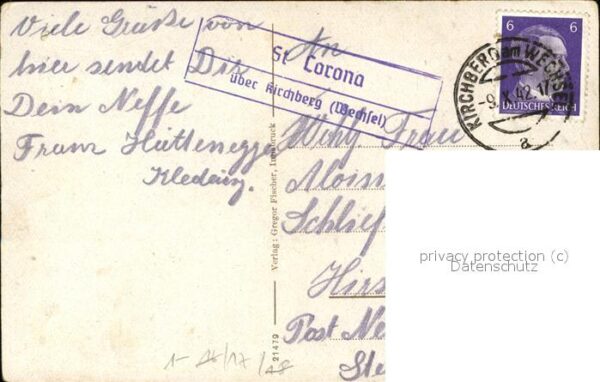 Viele Grüße von
hier sendet Dir
Dein Neffe
Franz Hüttenegger
St. Corona
über Kirchberg (Wechsel)
6 6
DEUTSCHES REICH
KIRCHBERG am WECHSEL
a
An
Wohl. Frau
Schlief
Hirs
Post Ne
Ste
Verlag: Gregor Fischer, Innsbruck
21479
privacy protection (c)
Datenschutz